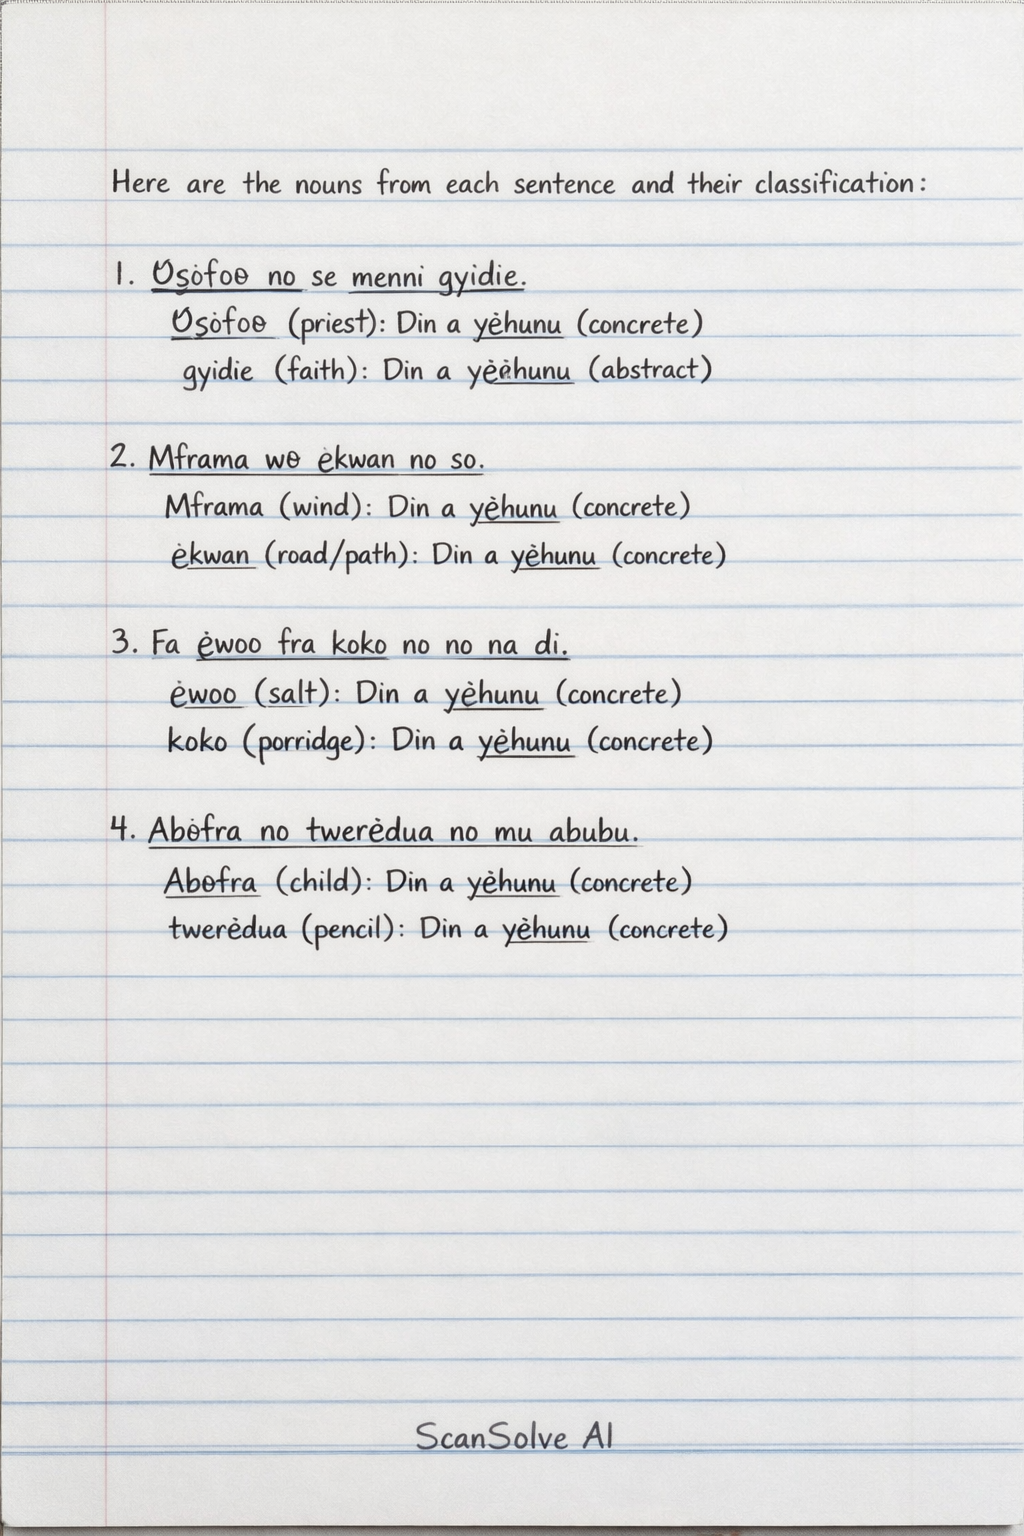 Here are the nouns from each sentence and their classification:
1. Ʊṣȯfoɵ no se menni gyidie.
Ʊṣȯfoɵ (priest): Din a yėhunu (concrete)
gyidie (faith): Din a yėėhunu (abstract)
2. Mframa wɵ ėkwan no so.
Mframa (wind): Din a yėhunu (concrete)
ėkwan (road/path): Din a yėhunu (concrete)
3. Fa ėwoo fra koko no no na di.
ėwoo (salt): Din a yėhunu (concrete)
koko (porridge): Din a yėhunu (concrete)
4. Abɵ̇fra no twerėdua no mu abubu.
Abɵfra (child): Din a yėhunu (concrete)
twerėdua (pencil): Din a yėhunu (concrete)
ScanSolve AI